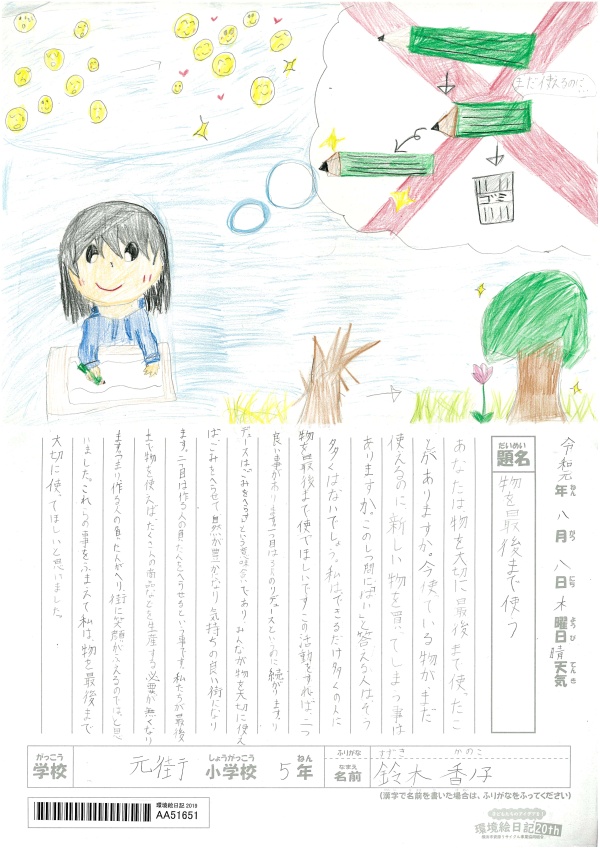 まだ使えるのに…
ゴミ
令和元年 八月 八日 木曜日 晴天気
ねん がつ にち ようび てんき
だいめい
題名
物を最後まで使う
あなたは物を大切に最後まで使ったこ
とがありますか。今使っている物がまだ
使えるのに新しい物を買ってしまう事は
ありますか。この二つ問に「はい」と答える人は、そう
多くはないでしょう。私は、できるだけ多くの人に
物を最後まで使ってほしいです。この活動をすれば、二つ
良い事がおこります。一つ目は3Rのリデュースというわに続がります。リ
デュースは「ごみをへらす」という意味であり、みんなが物を大切に使え
ばごみをへらせて自然が豊かになり気持ちの良い街になり
ます。二つ目は作る人の負たんをへらせるという事です。私たちが最後
まで物を使えば、たくさんの商品などを生産する必要が無くなり
ます。つまり作る人の負たんがへり、街に笑顔がふえるのでは、と思
いました。これらの事をふまえて私は、物を最後まで
大切に使ってほしいと思いました。
がっこう しょうがっこう ねん
学校 元街 小学校 5年
ふりがな すずき かのこ
なまえ
名前 鈴木 香子
(漢字で名前を書いた場合は、ふりがなをふってください)
環境絵日記 2019
AA51651
環境絵日記20th